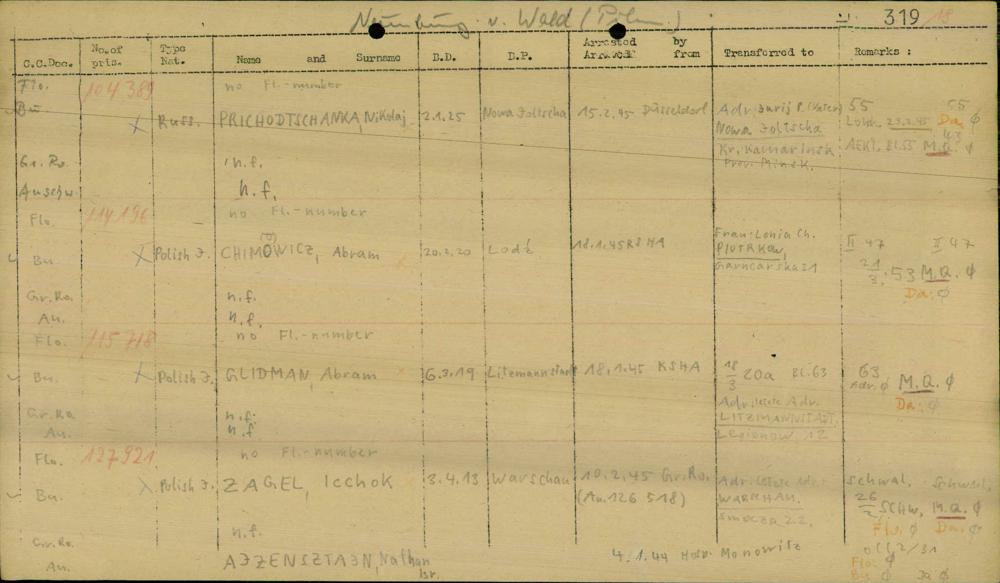 Neunburg v. Wald ( )
319 18
C.C.Doc. No.of pris. Type Nat. Name and Surname B.D. B.P. Arrested by Arrived from Transferred to Remarks :
Flo. 104 389 no Fl.-number
Bu X Russ. PRICHODTSCHANKA, Nikolaj 2.1.25 Nowa Joltscha 15.2.45 Düsseldorf Adr. Jurij P. (Vater) 55 55
Nowa Joltscha 23.2.45 Da ϕ
Kr. Kamarinsk M.Q. ϕ
Prov. Minsk.
Gr. Ro. n.f.
Auschw. n.f.
Flo. 114 196 no Fl.-number
Bu. X Polish J. CHIMOWICZ, Abram 20.2.20 Lodź 18.1.45 RSHA Frau: Lonia Ch. II 47 II 47
PIOTRKOW, 21/3. 53 M.Q. ϕ
Garncarska 21 Da: ϕ
Gr. Ro. n.f.
Au. n.f.
Flo. 115 718 no Fl.-number
Bu. X Polish J. GLIDMAN, Abram 6.3.19 Litzmannstadt 18.1.45 RSHA 18/3 20a Bl. 63 63
Adr. ϕ M.Q. ϕ
Adr. letzte Adr. Da: ϕ
LITZMANNSTADT,
Legionow 12
Gr. Ro. n.f.
Au. n.f
Flo. 127 921 no Fl.-number
Bu. X Polish J. ZAGEL, Icchok 3.4.13 Warschau 10.2.45 Gr. Ro. Adr. letzte Adr. Schwal. Schwal.
(Au. 126 518) WARSCHAU, 26/2 SCHW, M.Q. ϕ
Smocza 22. Flo. ϕ Da. ϕ
Gr. Ro. n.f.
Au. AJZENSZTAJN, Nathan Isr. 4.1.44 Hosp. Monowitz
Flo: ϕ
Bu: ϕ Da ϕ